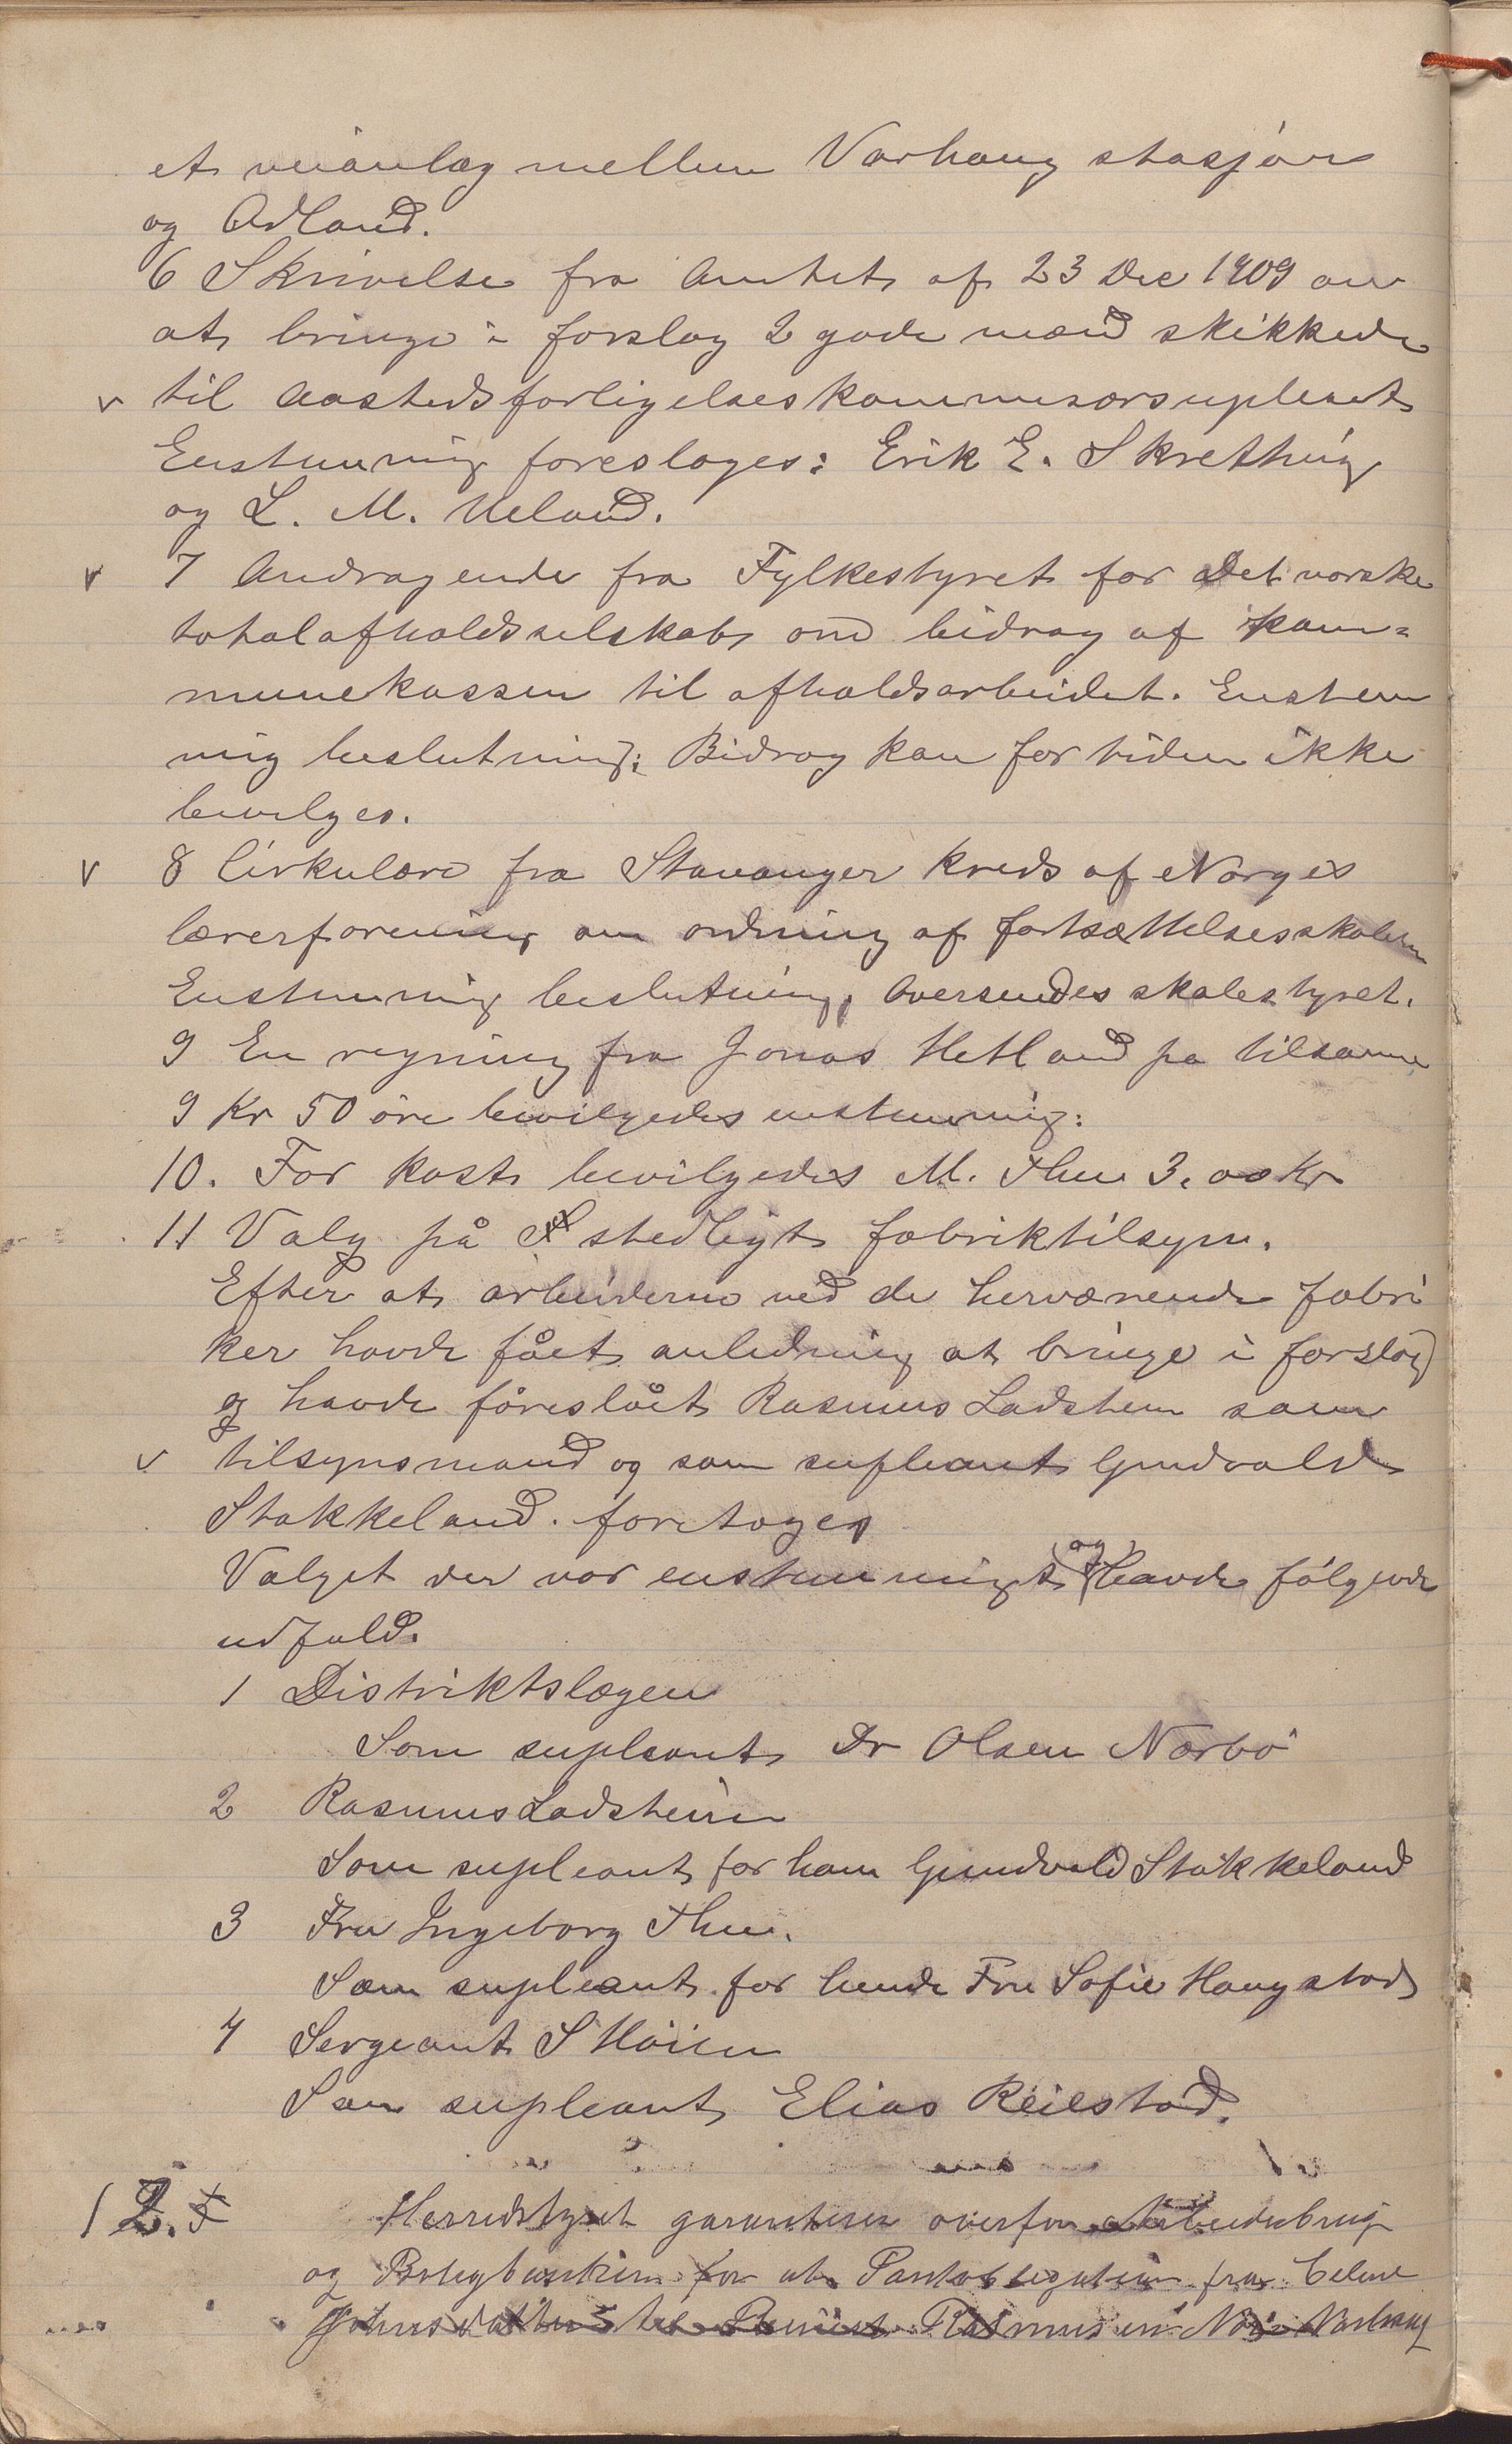 et veianlæg mellem Varhaug stasjon
og Ødland.
6 Skrivelse fra Amtet af 23 Dec 1909 om
at bringe i forslag 2 gode mænd skikkede
v til Aastedsforligelseskommisærsupleant
Enstemmig foresloges: Erik E. Skretting
og L. M. Ueland.
v 7 Andragende fra Fylkestyret for Det norske
totalafholdsselskab om bidrag af kom=
munekassen til afholdsarbeidet. Enstem
mig beslutning: Bidrag kan for tiden ikke
bevilges.
v 8 Cirkulære fra Stavanger kreds af Norges
lærerforening om ordning af fortsættelsesskolen
Enstemmig beslutning, Oversendes skolestyret.
9 En regning fra Jonas Hetland på tilsamme
9 Kr 50 øre bevilgedes enstemmig:
10. For kost bevilgedes M. Thu 3.00 Kr
11 Valg på stedligt fabriktilsyn.
Efter at arbeiderne ved de herværende fabri
ker havde fået anledning at bringe i forslag
og havde foreslået Rasmus Ladstein som
v tilsynsmand og som supleant Gundvald
Stokkeland. foretoges
Valget der var enstemmigt og havde følgende
udfald.
1 Distriktslægen
Som supleant Dr Olsen Nærbø
2 Rasmus Ladstein
Som supleant for ham Gundvald Stokkeland
3 Fru Ingeborg Thu.
Som supleant for hende Fru Sofie Haugstad
4 Sergeant S Höien
Som supleant Elias Reiestad.
12. Herredstyret garanterer overfor Arbeiderbrug
og Boligbanken for at Pantobligation fra
Johns Rasmus Varhaug